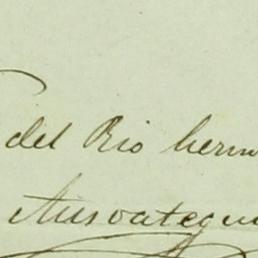 del Rio herm
Auroategui